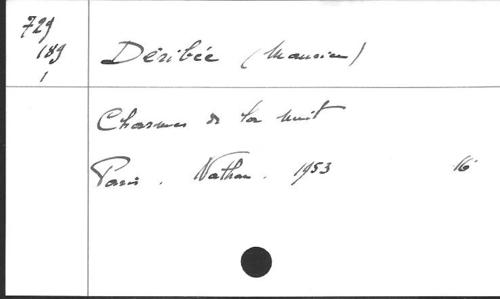 729
189
1
Déribée (Maurice)
Charmes de la nuit
Paris. Nathan. 1953 16